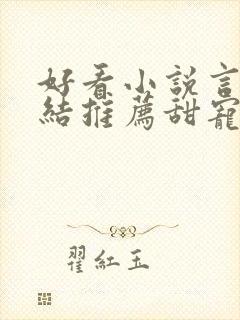 好看小說言
結推薦甜寵
翟紅玉